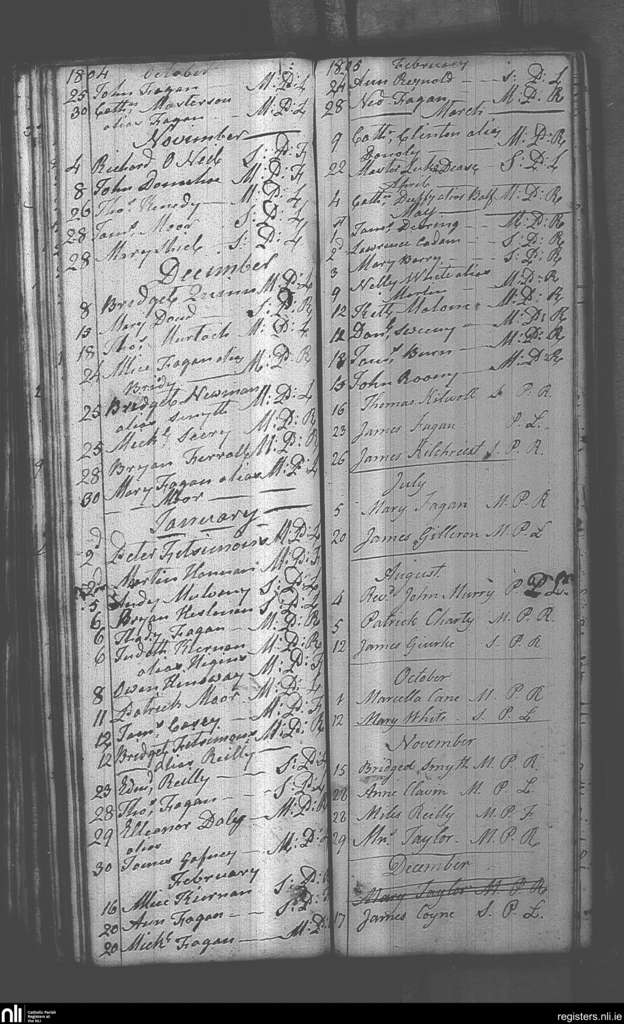 1804 October
25 John Fagan M: D: L
30 Cathn Masterson M: D: L
alias Fagan
November
4 Richard O Neil S: D: F
8 John Donnelin M: D: F
26 Thos Kenedy M: D: L
28 Jams Moor S: D: L
28 Mary S: D: L
December
8 Bridget M: D: L
15 Mary Dowd S: D: R
18 Thos Murtach M: D: L
24 Alice Fagan alias M: D: R
Brady
25 Bridget Newman M: D: L
alias Smyth
25 Michl Seery M: D: R
28 Bryan Ferrall M: D: R
30 Mary Fagan alias M: D: L
Moor
January
2d Peter Fitsimons M: D: L
Martin M: D: F
5 Mulvany S: D: L
6 Bryan S: D: L
6 Thady Fagan M: D: R
6 Judath Kiernan M: D: R
alias Higins
8 Owen M: D: F
11 Patrick Moor M: D: L
12 Jams Casey M: D: F
12 Bridget Fitsimons M: D: R
alias Reilly
23 Edmd Reilly S: D: L
28 Thos Fagan S: D: L
29 Elleanor Daly M: D:
alias
30 James Gafney M: D:
February
16 Alice Kiernan S: D:
20 Ann Fagan S: D:
20 Michl Fagan M: D:
1805 February
24 Ann Reynold S: D: L
28 Ned Fagan M: D: R
March
9 Cathn Clinton alias M: D: R
22 Master Luke Dease S: D: L
April
4 Cathn Duffy alias Balf M: D: R
May
1st Jams Deering M: D: R
2d Lawrence Cadam S: D: R
3 Mary Barry S: D: R
9 Nelly White alias M: D: R
Martin
12 Kitty Malone M: D: R
12 Danl Sweeny M: D: R
13 Jams Burn M: D: R
15 John Roony M: D: R
16 Thomas Kilwoll S. P. R.
23 James Fagan P. L.
26 James Kilchriest S. P. R.
July
5 Mary Fagan M. P. R
20 James Gilleron M. P. L
August
4 Revd John Murry P. P. Lr
5 Patrick Charty M. P. R.
12 James Giurke S. P. R
October
4 Marcella Cane M. P. R
12 Mary White S. P. L
November
15 Bridged Smyth M. P. R
28 Anne M. P. L
28 Miles Reilly M. P. F
29 Mrs Taylor M. P. R
December
Mary Taylor M. P. R
17 James Coyne S. P. L.
nli Catholic Parish Registers at the NLI
registers.nli.ie